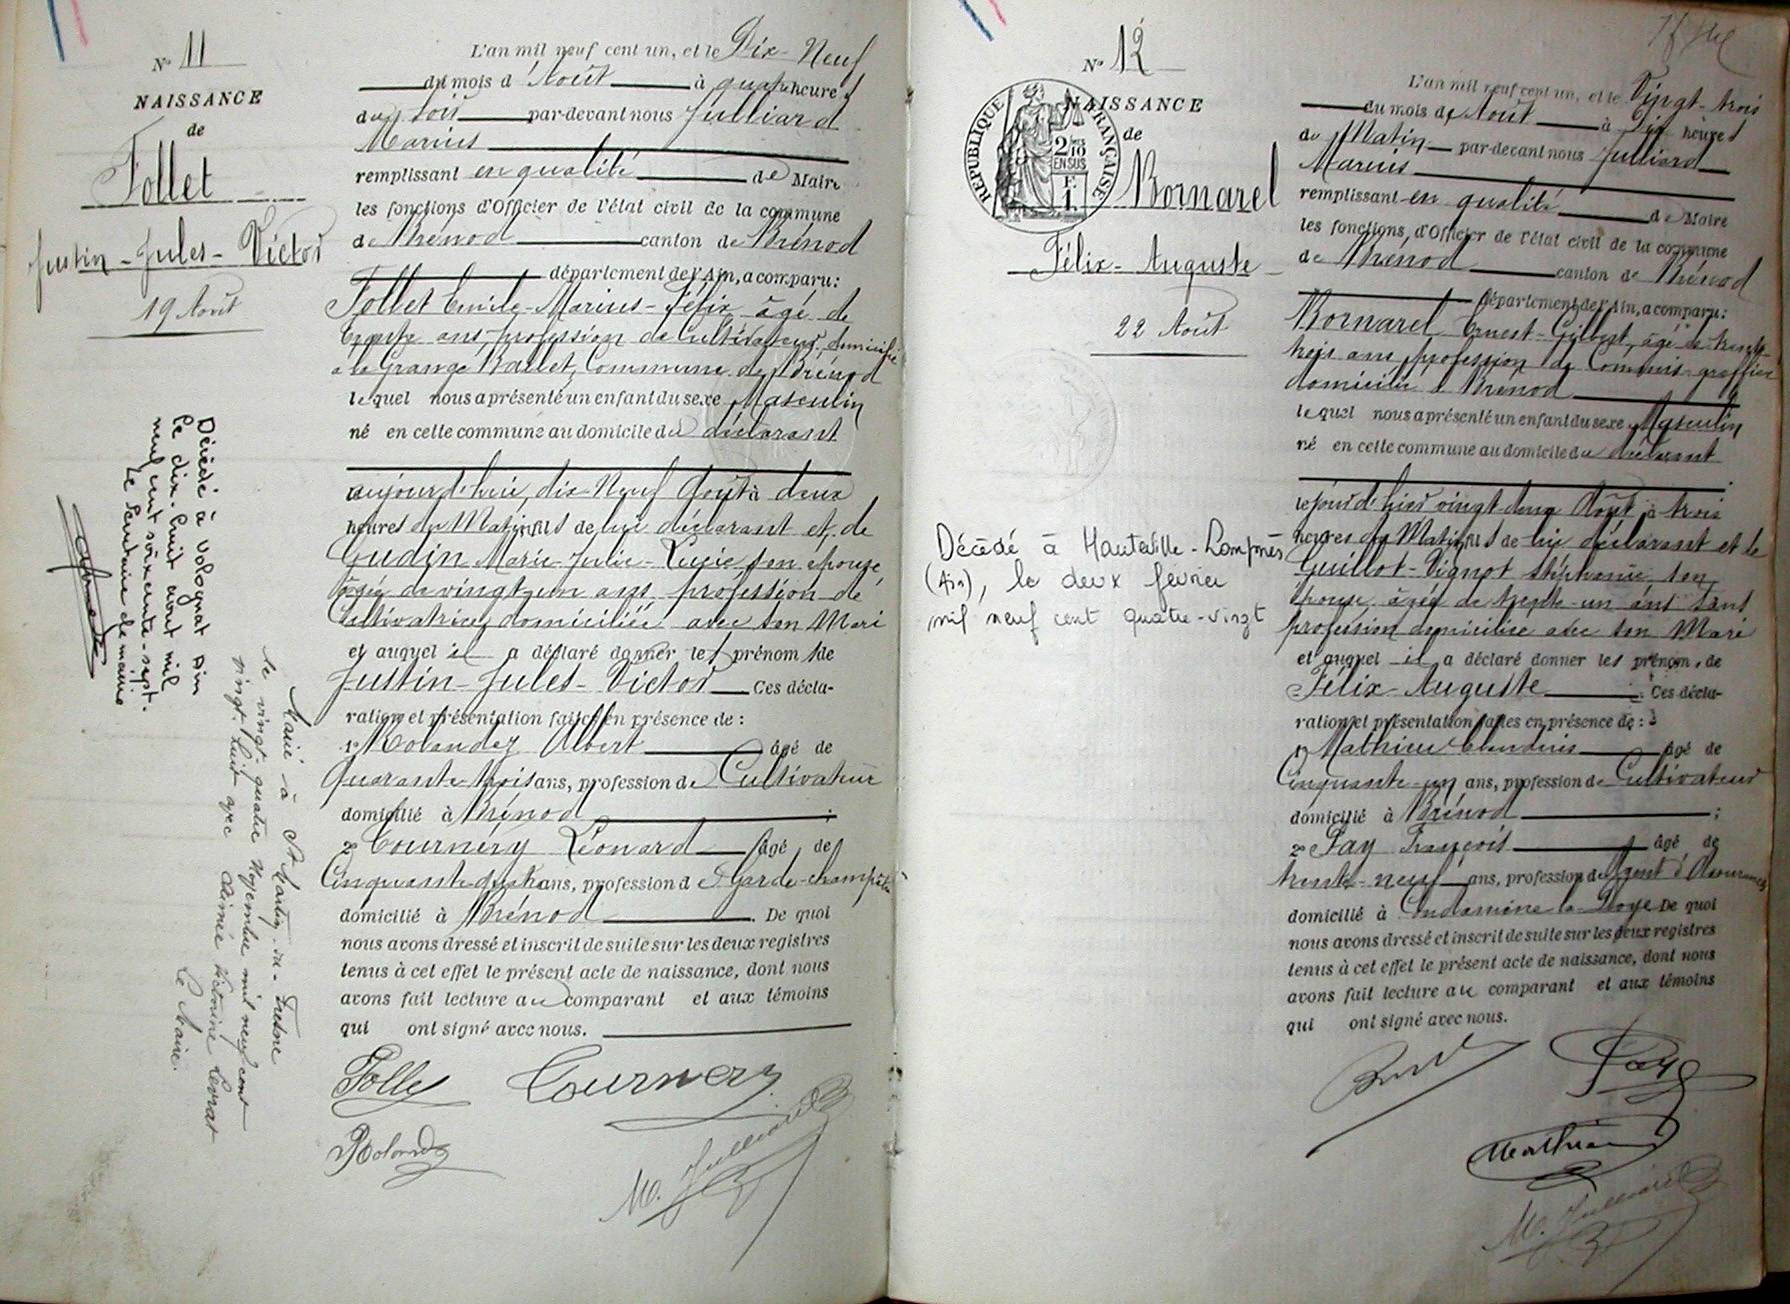 N° 11
NAISSANCE
de
Follet
Justin-Jules-Victor
19 Août
Décédé à Volognat Ain
le dix-huit août mil
neuf cent soixante-sept.
Le Secrétaire de mairie
Marié à St Martin-du-Fresne
le vingt-quatre Novembre mil neuf cent
vingt-huit avec Aimée Victorine Levrat
Le Maire.
L'an mil neuf cent un, et le Dix-Neuf
du mois d'Août à quatre heures
du soir par-devant nous Julliard
Marius
remplissant en qualité de Maire
les fonctions d'Officier de l'état civil de la commune
de Brénod canton de Brénod
département de l'Ain, a comparu:
Follet Emile-Marius-Félix âgé de
trente ans, profession de Cultivateur, domicilié
à la Grange Ballet, Commune de Brénod
lequel nous a présenté un enfant du sexe Masculin
né en cette commune au domicile du déclarant
aujourd'hui dix-Neuf Août à deux
heures du Matin, fils de lui déclarant et de
Gudin Marie-Julie-Lucie son épouse
âgée de vingt-un ans, profession de
Cultivatrice, domiciliée avec son Mari
et auquel il a déclaré donner les prénoms de
Justin-Jules-Victor Ces décla-
ration et présentation faites en présence de :
1° Rolandez Albert âgé de
Quarante-trois ans, profession de Cultivateur
domicilié à Brénod ;
2° Tournéry Léonard âgé de
Cinquante-quatre ans, profession de Garde-champêtre
domicilié à Brénod. De quoi
nous avons dressé et inscrit de suite sur les deux registres
tenus à cet effet le présent acte de naissance, dont nous
avons fait lecture au comparant et aux témoins
qui ont signé avec nous.
Follet Tournery
Rolandez
M. Julliard
N° 12
NAISSANCE
de
RÉPUBLIQUE FRANÇAISE
2/10
EN SUS
F.
1.
Bornarel
Félix-Auguste
22 Août
Décédé à Hauteville-Lompnes
(Ain), le deux février
mil neuf cent quatre-vingt
L'an mil neuf cent un, et le Vingt-trois
du mois d'Août à dix heures
du Matin par-devant nous Julliard
Marius
remplissant en qualité de Maire
les fonctions d'Officier de l'état civil de la commune
de Brénod canton de Brénod
département de l'Ain, a comparu:
Bornarel Ernest-Gilbert, âgé de trente-
trois ans, profession de Commis-greffier
domicilié à Brénod
lequel nous a présenté un enfant du sexe Masculin
né en cette commune au domicile du déclarant
le jour d'hier vingt-deux Août à trois
heures du Matin, fils de lui déclarant et de
Guillot-Vignot Stéphanie son
épouse, âgée de trente-un ans sans
profession domiciliée avec son Mari
et auquel il a déclaré donner les prénoms de
Félix-Auguste. Ces décla-
ration et présentation faites en présence de :
1° Mathieu Claudius âgé de
Cinquante-un ans, profession de Cultivateur
domicilié à Brénod ;
2° Pay François âgé de
trente-neuf ans, profession d'Agent d'Assurances
domicilié à Condamine la Doye De quoi
nous avons dressé et inscrit de suite sur les deux registres
tenus à cet effet le présent acte de naissance, dont nous
avons fait lecture au comparant et aux témoins
qui ont signé avec nous.
Pay
Mathieu
M. Julliard